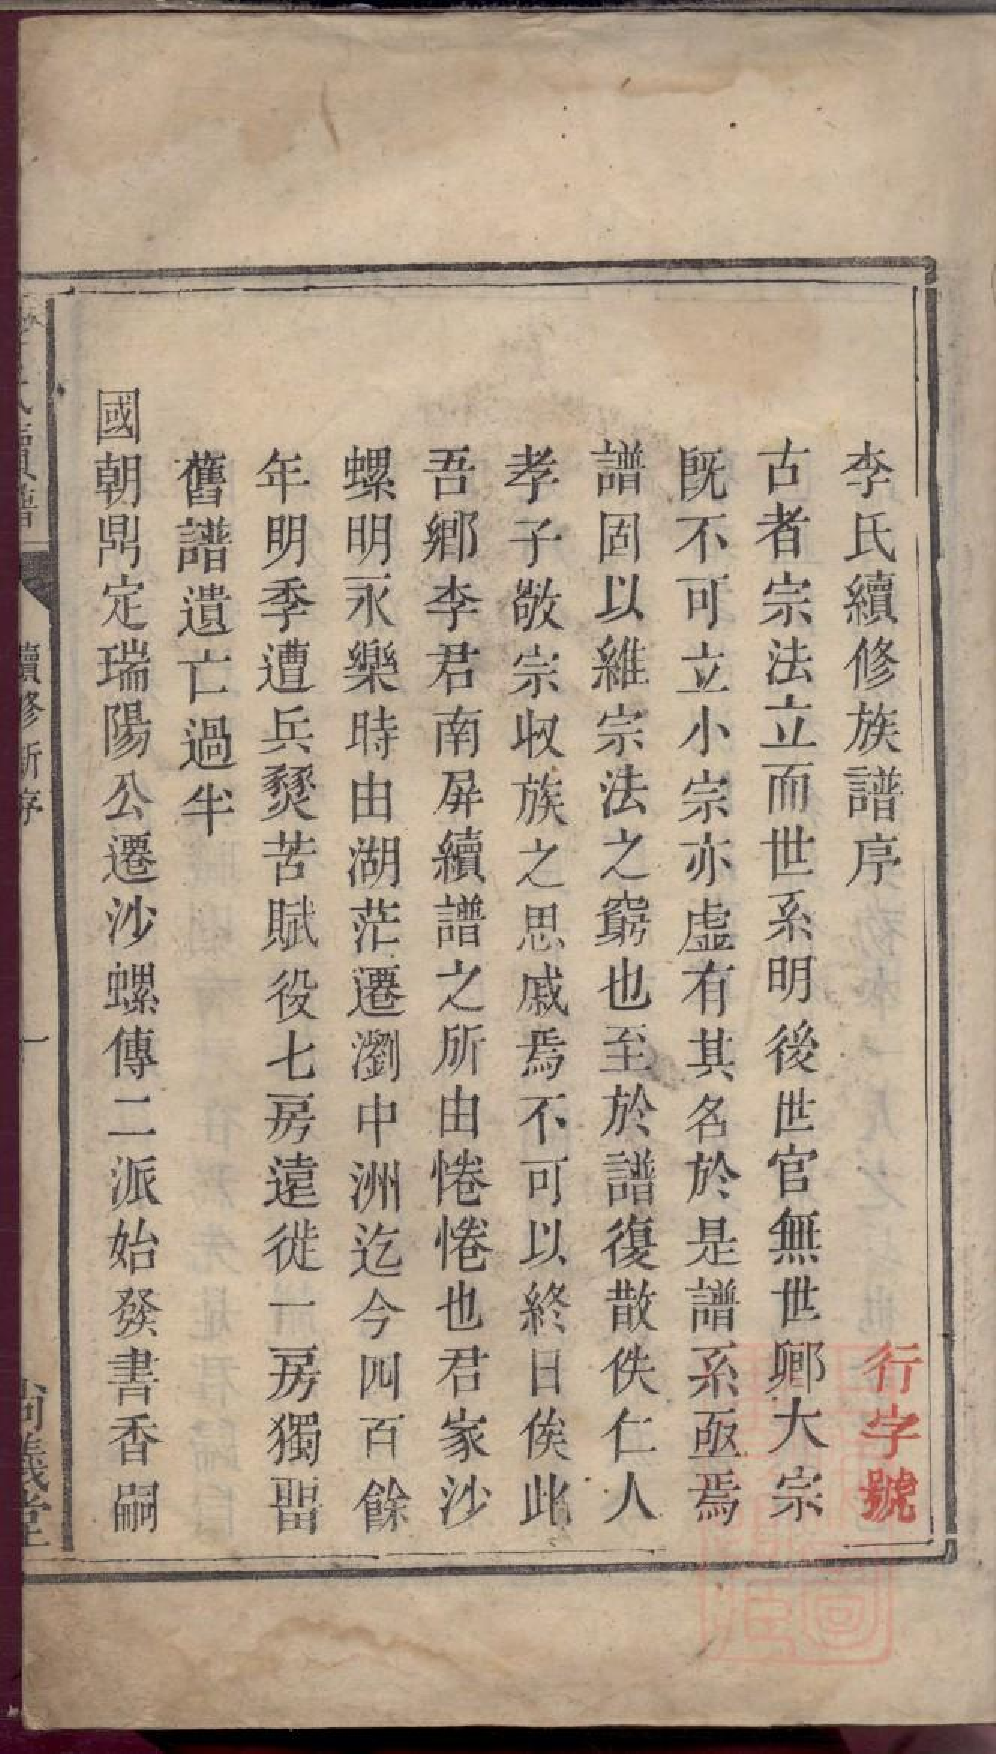 李氏續修族譜序
行字號
古者宗法立而世系明後世官無世卿大宗
旣不可立小宗亦虛有其名於是譜系亟焉
譜固以維宗法之窮也至於譜復散佚仁人
孝子敬宗收族之思戚焉不可以終日俟此
吾鄉李君南屏續譜之所由惓惓也君家沙
螺明永樂時由湖茫遷瀏中洲迄今四百餘
年明季遭兵燹苦賦役七房遠徙一房獨畱
舊譜遺亡過半
國朝鼎定瑞陽公遷沙螺傳二派始發書香嗣
氏續譜
續修新序
一
尚義堂